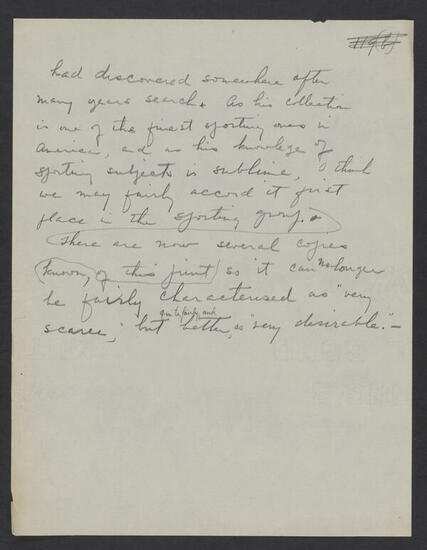 had discovered somewhere after
many years search. As his collection
is one of the finest sporting ones in
America, and as his knowlege of
sporting subjects is sublime, I think
we may fairly accord it first
place in the sporting group.
There are now several copies
known, of this print so it can no longer
be fairly characterised as "very
scarce," but quite fairly, and better, as "very desirable."—